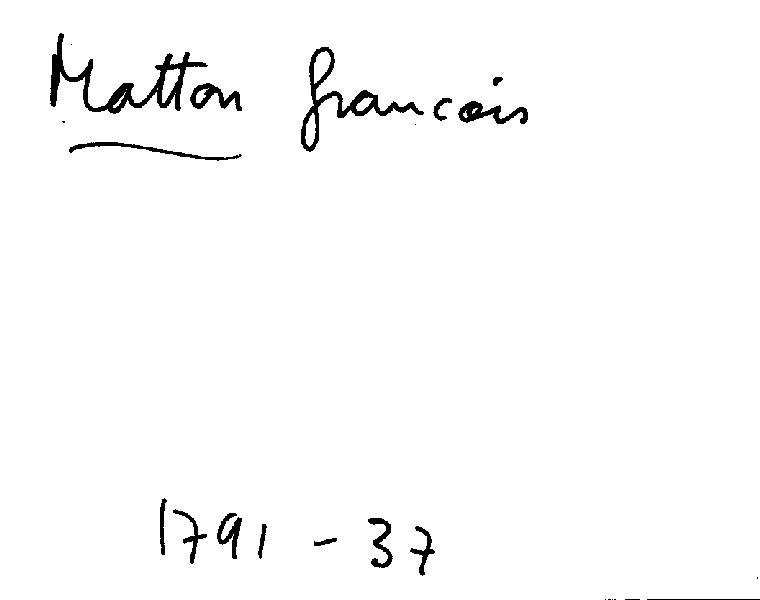 Matton francois
1791 - 37